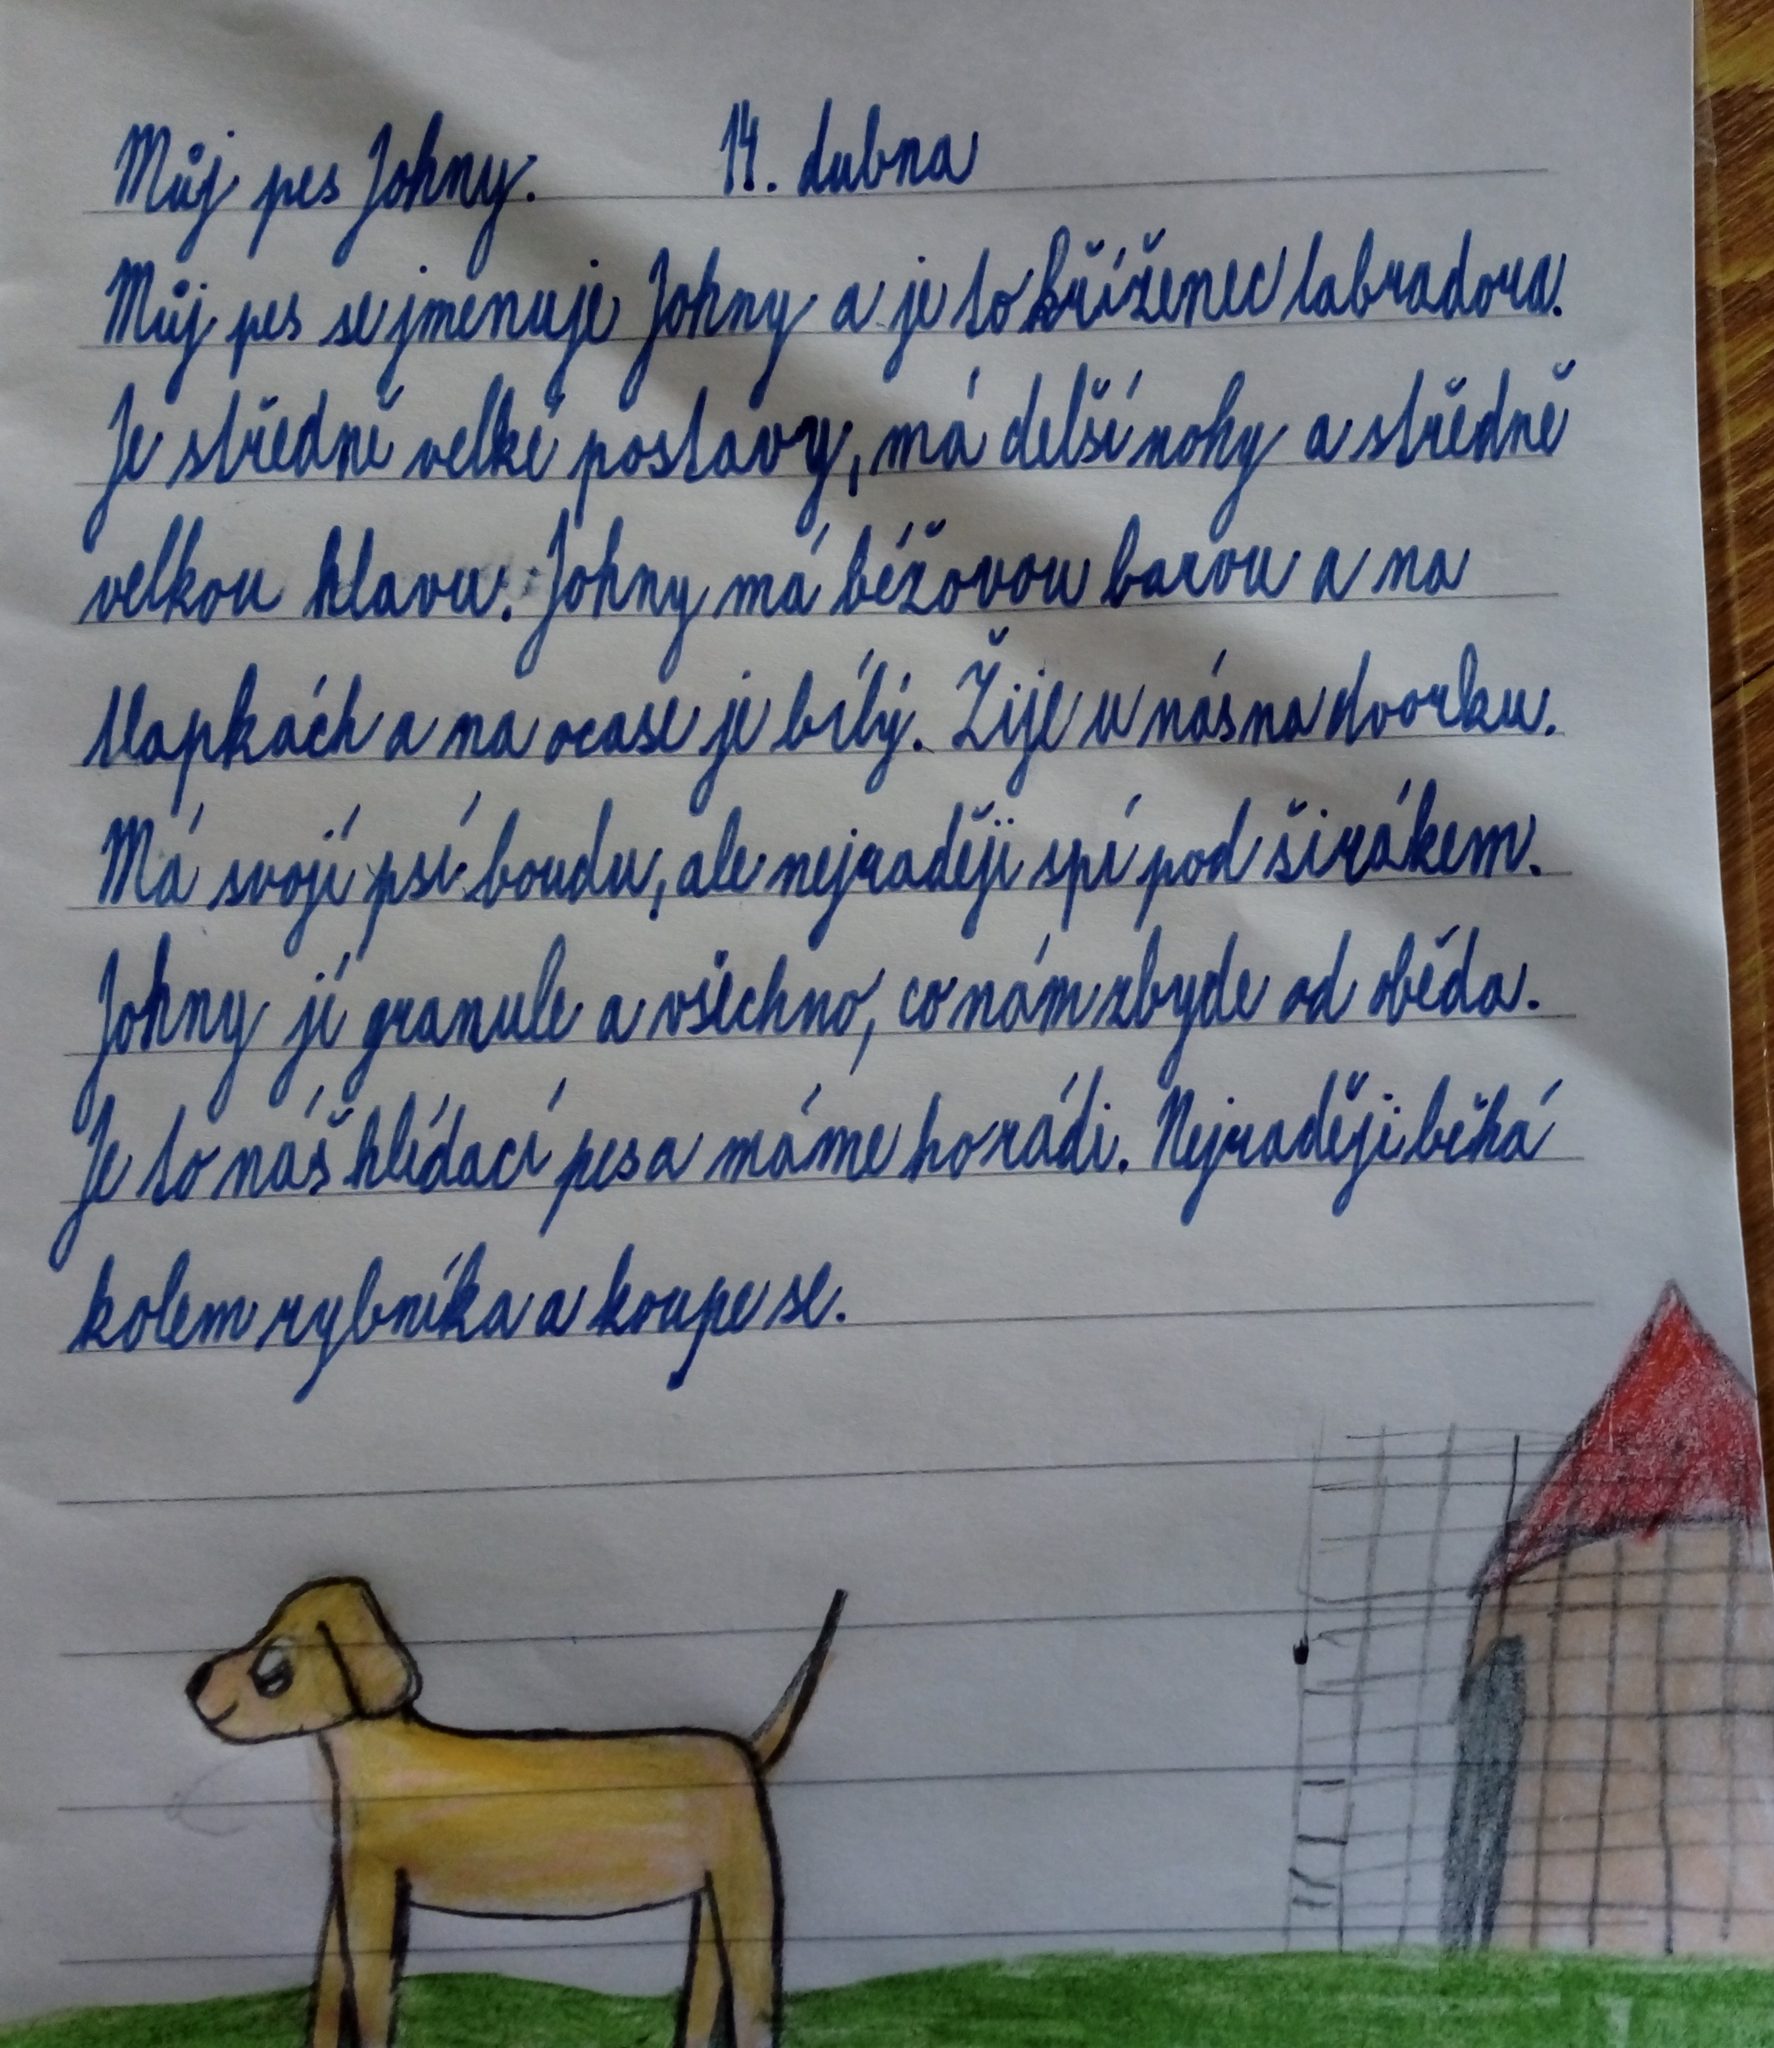 Můj pes Johny. 14. dubna
Můj pes se jmenuje Johny a je to kříženec labradora.
Je středně velké postavy, má delší nohy a středně
velkou hlavu. Johny má béžovou barvu a na
tlapkách a na ocase je bílý. Žije u nás na dvorku.
Má svojí psí boudu, ale nejraději spí pod širákem.
Johny jí granule a všechno, co nám zbyde od oběda.
Je to náš hlídací pes a máme ho rádi. Nejraději běhá
kolem rybníka a koupe se.